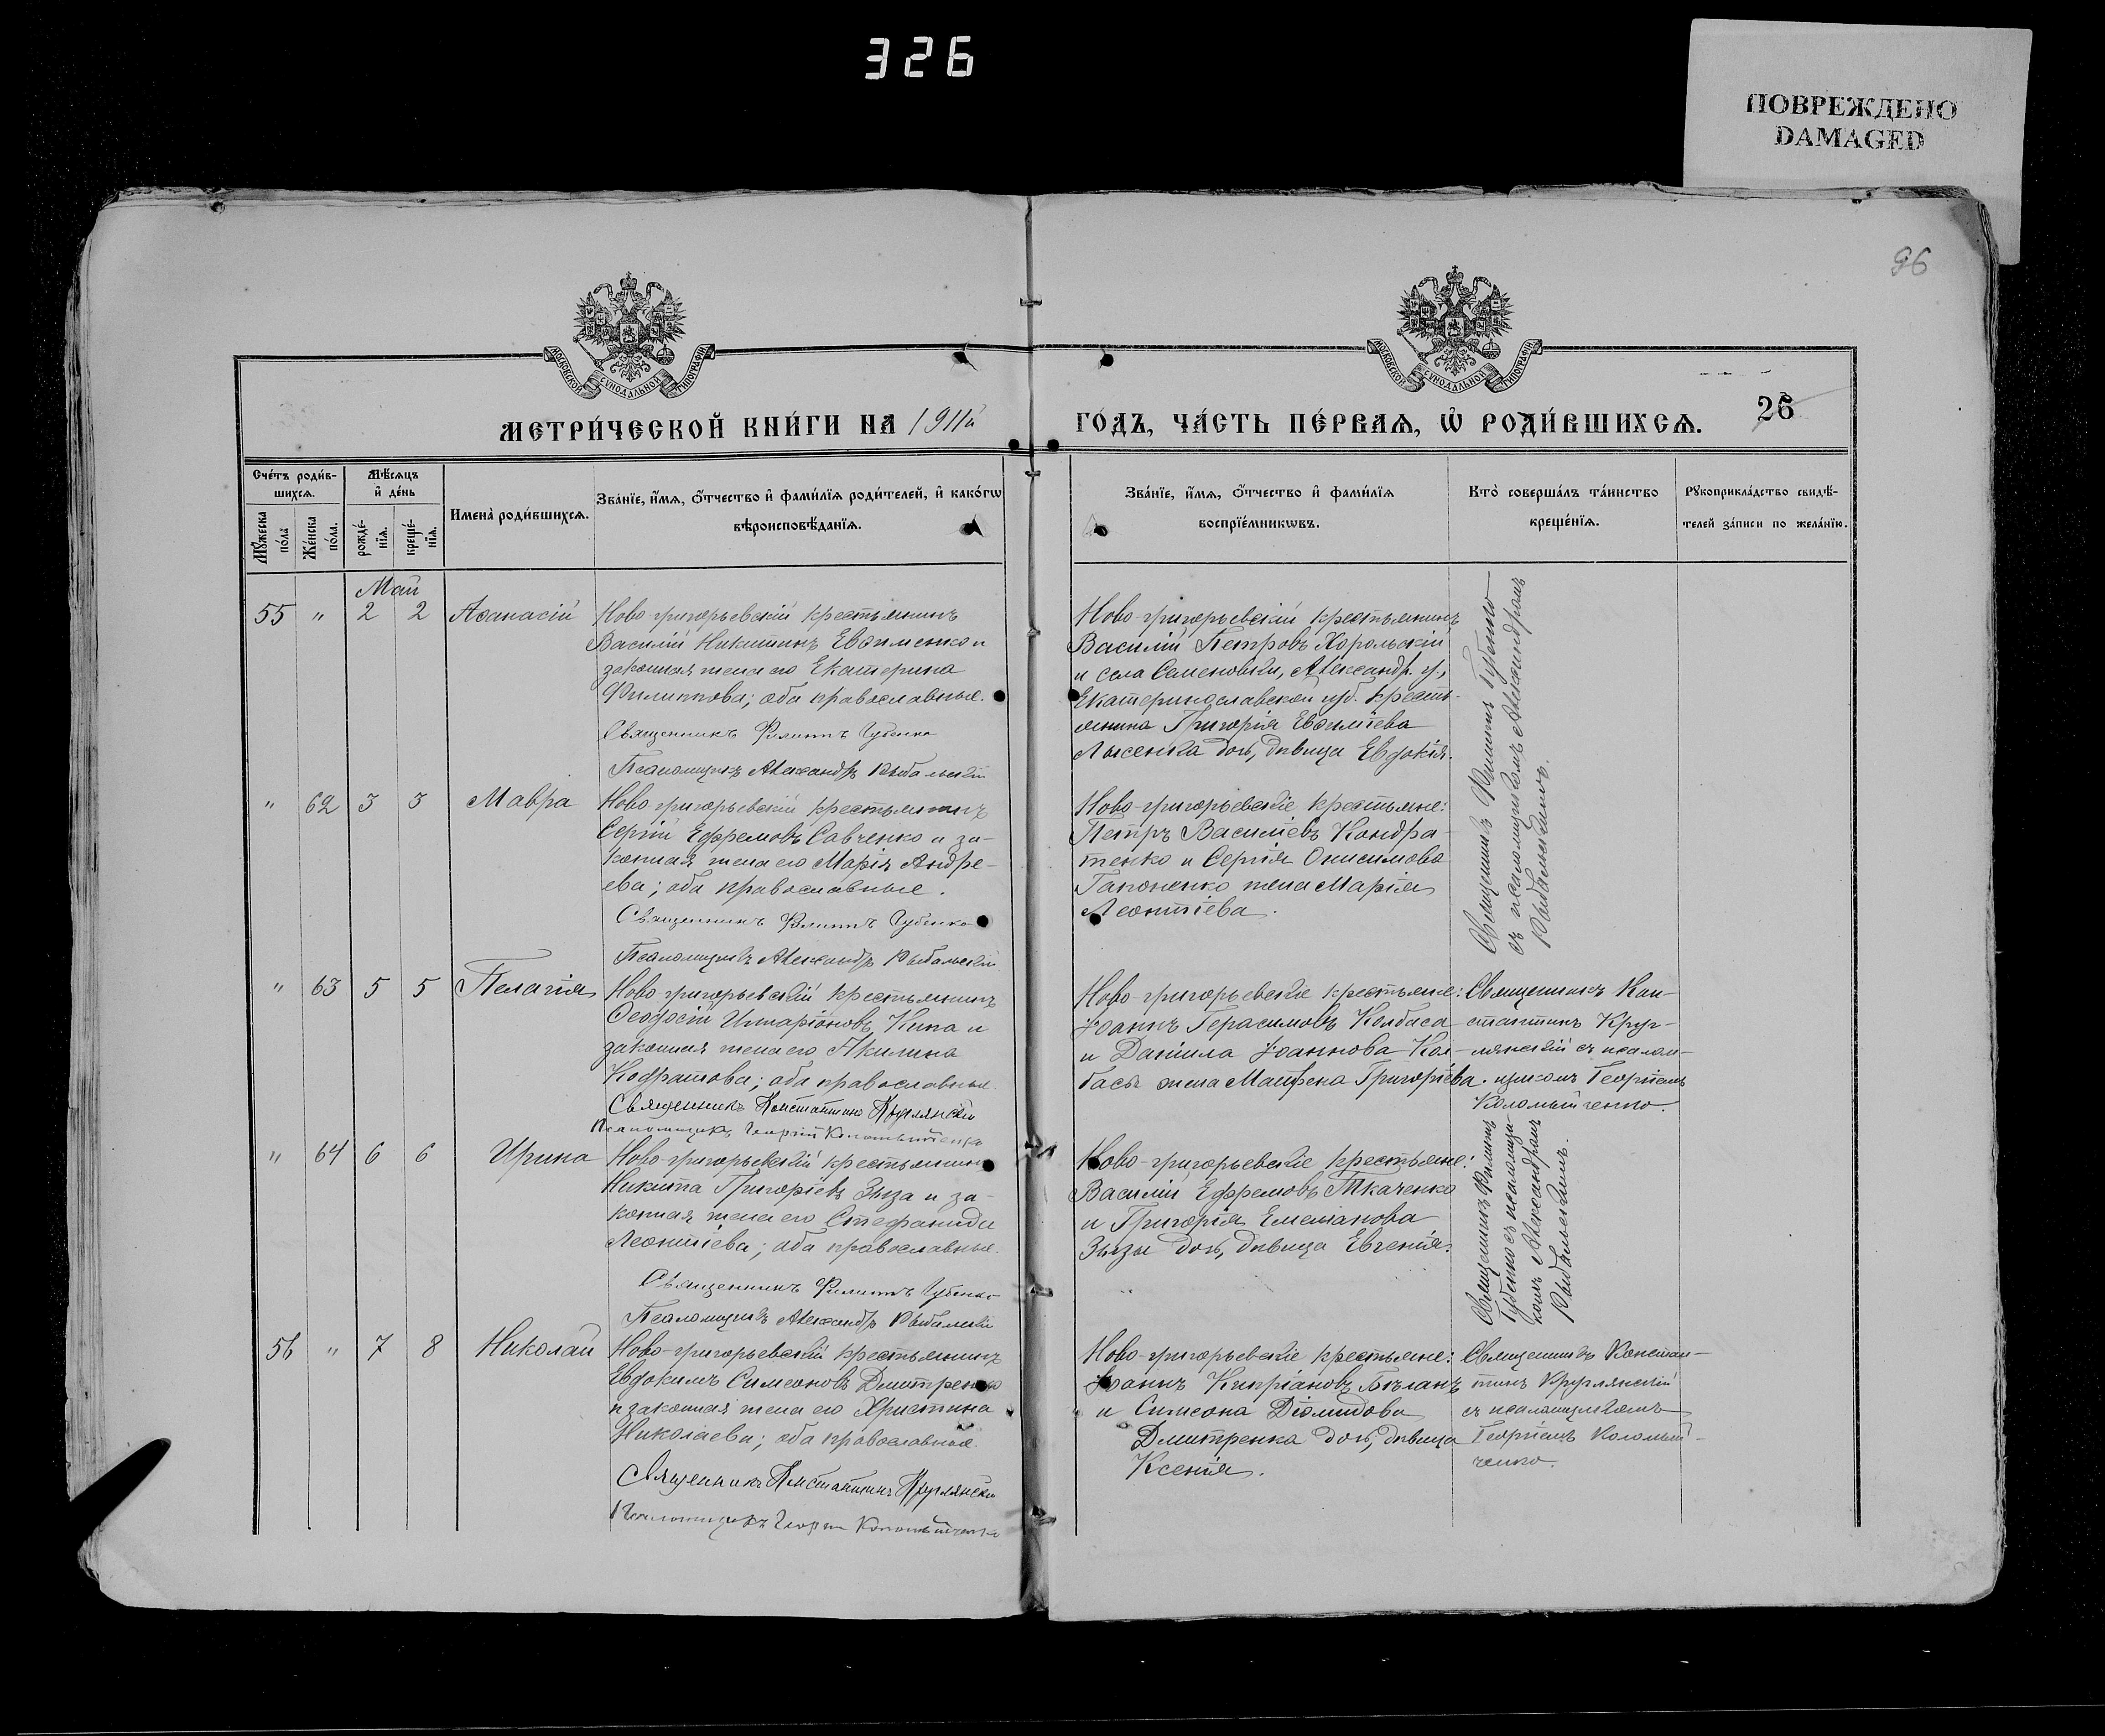 326
ПОВРЕЖДЕНО
DAMAGED
96
МОСКОВСКОЙ СѴНОДАЛЬНОЙ ТИПОГРАФІИ
МОСКОВСКОЙ СѴНОДАЛЬНОЙ ТИПОГРАФІИ
МЕТРИ́ЧЕСКОЙ КНИ́ГИ НА 1911й
ГО́ДЪ, ЧА́СТЬ ПЕ́РВАЯ, Ѡ҆ РОДИ́ВШИХСЯ.
26
Сче́тъ роди́в-
шихся.
Мѣ́сяцъ
и҆ де́нь
Мꙋ́жеска
по́ла
Же́нска
по́ла.
рожде́-
нїя.
креще́-
нїя.
Имена̀ роди́вшихся.
Зва́нїе, и҆́мя, ѻ҆́тчество и҆ фами́лїя роди́телей, и҆ како́гѡ
вѣроисповѣ́данїя.
Зва́нїе, и҆́мя, ѻ҆́тчество и҆ фами́лїя
воспрїе́мникѡвъ.
Кто̀ соверша́лъ та́инство
креще́нїя.
Рꙋкоприкла́дство свидѣ́-
телей за́писи по жела́нїю.
Май
55 " 2 2 Аѳанасій
Ново-григорьевскій крестьянинъ
Василій Никитинъ Евѳименко и
законная жена его Екатерина
Филиппова; оба православные.
Священникъ Филиппъ Губенко
Псаломщикъ Александръ Рыбальскій
Ново-григорьевскій крестьянинъ
Василій Петровъ Хорольскій
и села Семеновки, Александр. у.,
Екатеринославской губ. кресть-
янина Григорія Евѳиміева
Лысенка дочь, дѣвица Евдокія.
Священникъ Филиппъ Губенко
съ псаломщикомъ Александромъ
Рыбальскимъ.
" 62 3 3 Мавра
Ново-григорьевскій крестьянинъ
Сергій Ефремовъ Савченко и за-
конная жена его Марія Андре-
ева; оба православные.
Священникъ Филиппъ Губенко
Псаломщикъ Александръ Рыбальскій
Ново-григорьевскіе крестьяне:
Петръ Василіевъ Кондра-
тенко и Сергія Онисимова
Гапоненко жена Марія
Леонтіева.
" 63 5 5 Пелагія
Ново-григорьевскій крестьянинъ
Ѳеодосій Иларіоновъ Кипа и
законная жена его Акилина
Кодратова; оба православные.
Священникъ Константинъ Круглянскій
Псаломщикъ Георгій Коломыйченко
Ново-григорьевскіе крестьяне:
Іоаннъ Герасимовъ Колбаса
и Даніила Іоаннова Кол-
басы жена Манефа Григоріева.
Священникъ Кон-
стантинъ Круг-
лянскій съ псалом-
щикомъ Георгіемъ
Коломыйченко.
" 64 6 6 Ирина
Ново-григорьевскій крестьянинъ
Никита Григоріевъ Зыза и за-
конная жена его Стефанида
Леонтіева; оба православные.
Священникъ Филиппъ Губенко
Псаломщикъ Александръ Рыбальскій
Ново-григорьевскіе крестьяне:
Василій Ефремовъ Ткаченко
и Григорія Емеліанова
Зызы дочь, дѣвица Евгенія.
Священникъ Филиппъ
Губенко съ псаломщи-
комъ Александромъ
Рыбальскимъ.
56 " 7 8 Николай
Ново-григорьевскій крестьянинъ
Евдокимъ Симеоновъ Дмитренко
и законная жена его Христина
Николаева; оба православные.
Священникъ Константинъ Круглянскій
Псаломщикъ Георгій Коломыйченко
Ново-григорьевскіе крестьяне:
Іоаннъ Кипріановъ Бѣланъ
и Симеона Діомидова
Дмитренка дочь, дѣвица
Ксенія.
Священникъ Констан-
тинъ Круглянскій
съ псаломщикомъ
Георгіемъ Коломый-
ченко.